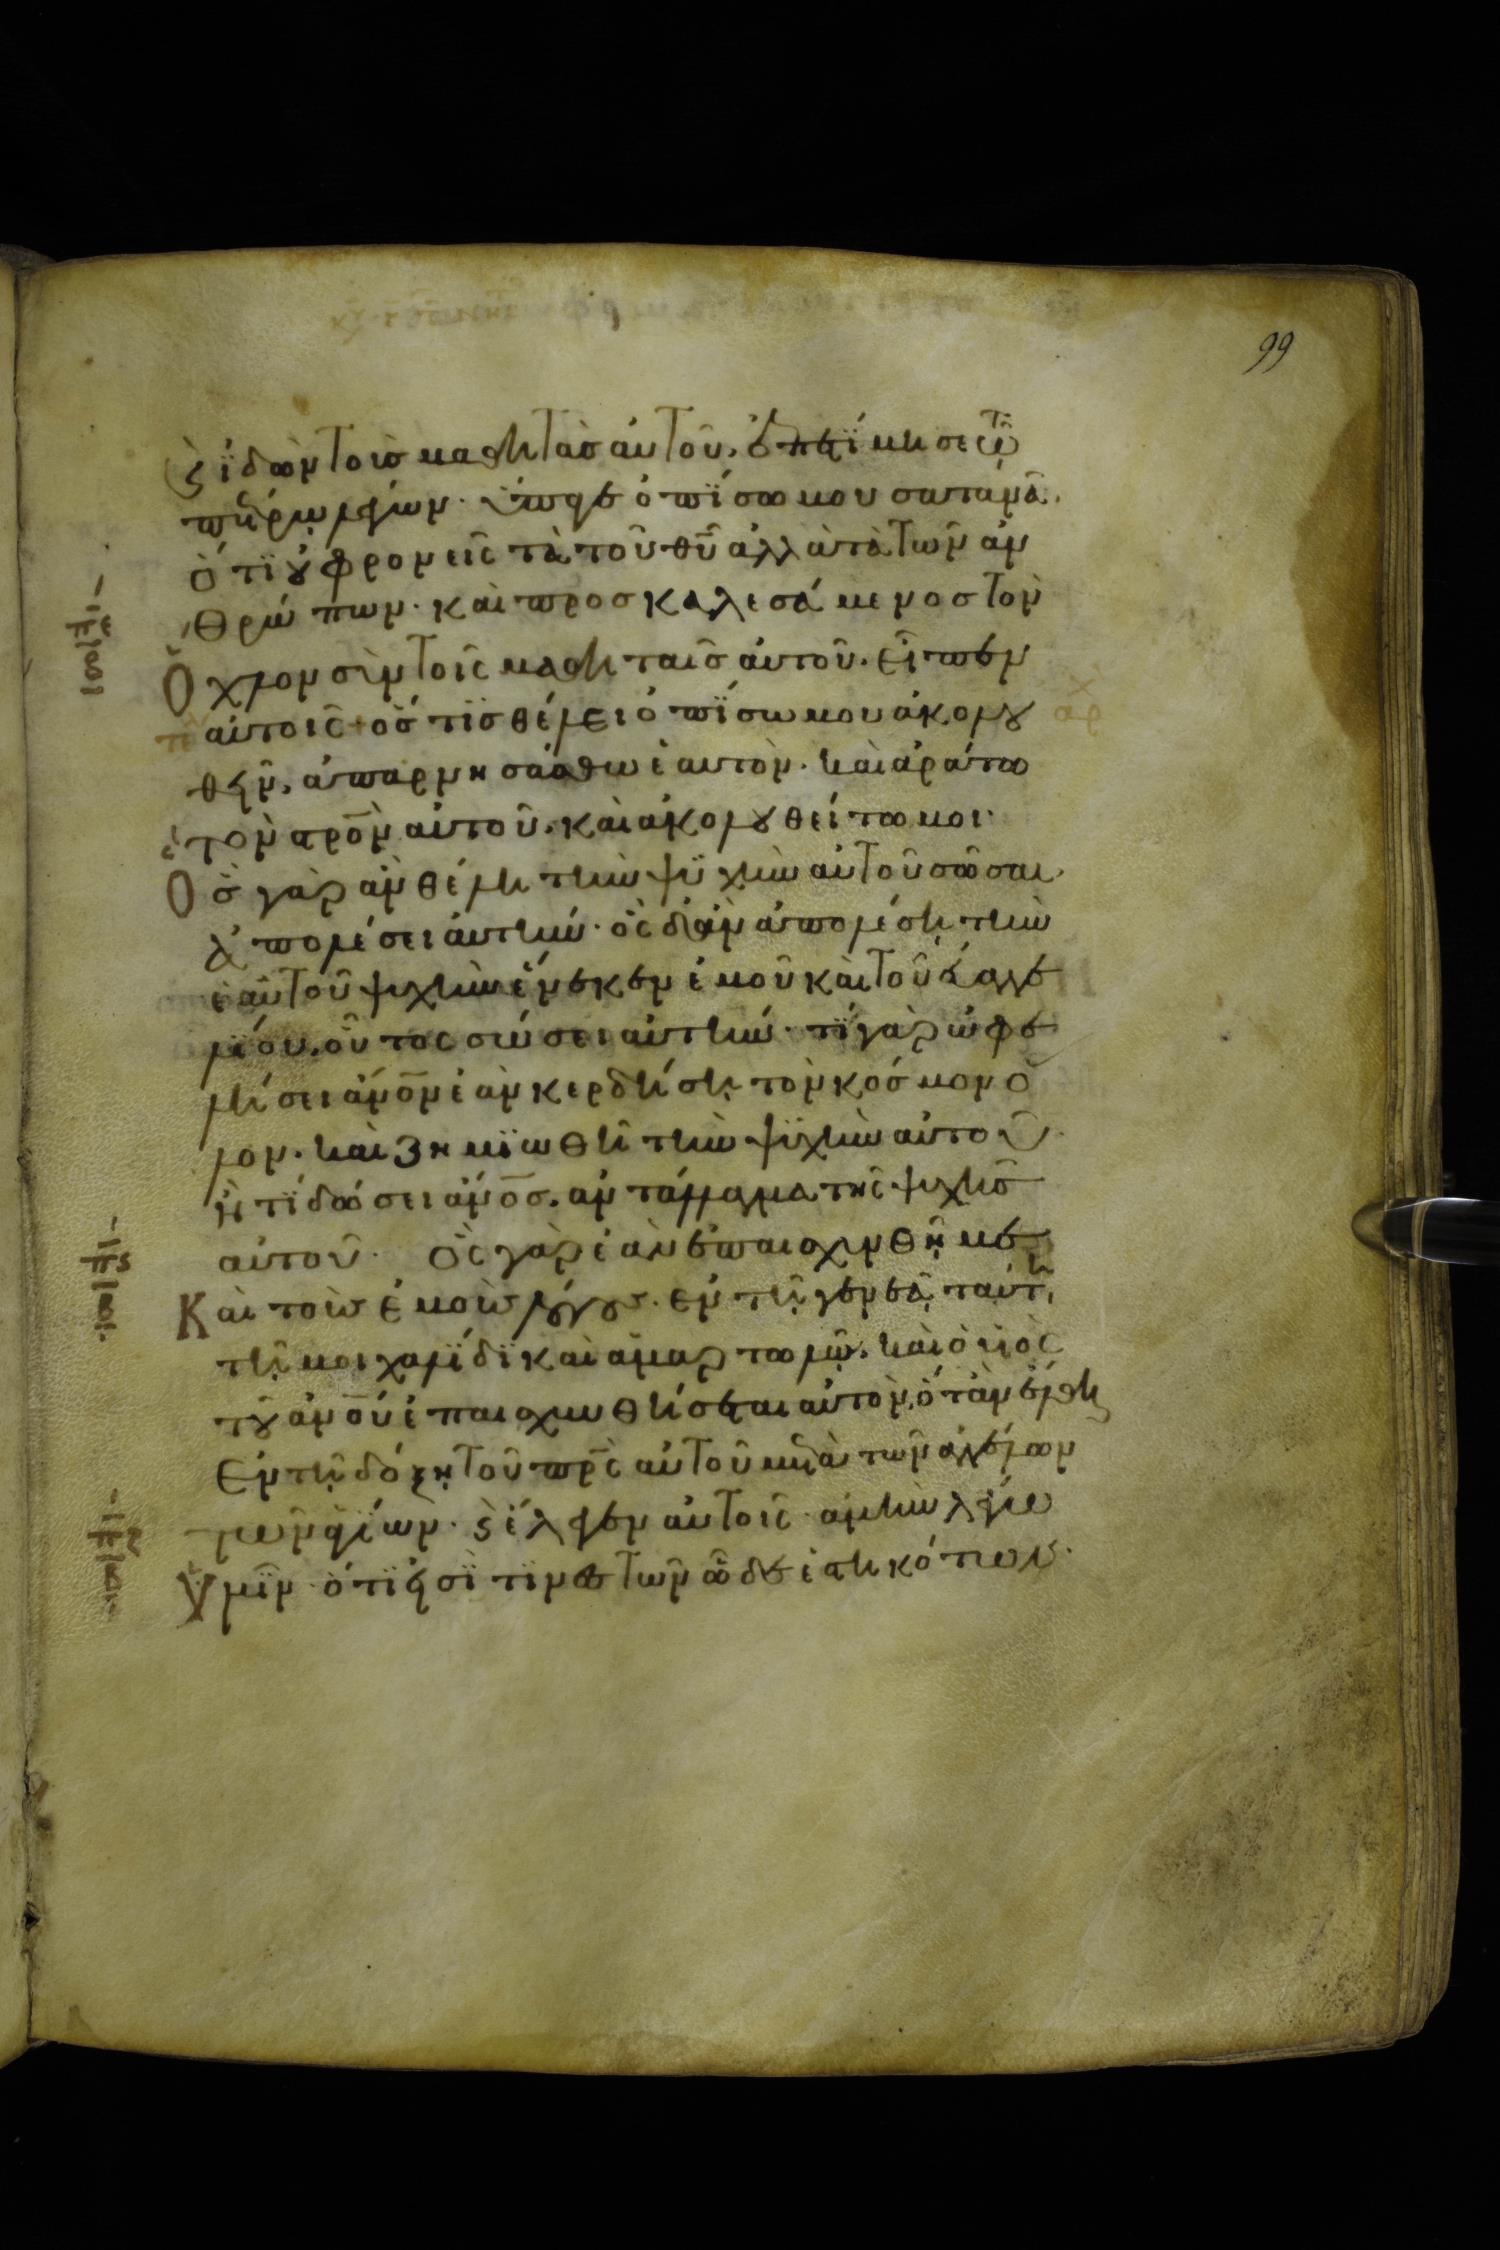 99
ϛ ἰδὼν τοὺσ μαθητὰσ αὐτοῦ. ἐπετίμησε τῶ
πέτρω λέγων. ὕπαγε ὀπίσω μου σατανᾶ.
ὅτι οὐ φρονεῖς τὰ τοῦ θῦ ἀλλὰ τὰ τῶν ἀν
θρώπων. καὶ προσκαλεσάμενοσ τὸν
ὄχλον σὺν τοῖς μαθηταῖσ αὐτοῦ. εἶπεν
αὐτοῖς + ὅστισ θέλει ὀπίσω μου ἀκολου
θεῖν. ἀπαρνησάσθω ἑαυτὸν. καὶ ἀράτω
τὸν σρον αὐτοῦ. καὶ ἀκολουθείτω μοι.
Ὃσ γὰρ ἂν θέλη τὴν ψυχὴν αὐτοῦ σῶσαι.
ἀπολέσει αὐτήν. ὃς δ' ἂν ἀπολέση τὴν
ἑαυτοῦ ψυχὴν ἕνεκεν ἐμοῦ καὶ τοῦ εὐαγγε
λίου. οὗτος σώσει αὐτήν. τί γὰρ ὠφε
λήσει ἄνον ἐὰν κερδήση τὸν κόσμον ὅ
λον. καὶ ζημιωθῆ τὴν ψυχὴν αὐτοῦ.
ἢ τί δώσει ἄνοσ. ἀντάλλαγμα τῆς ψυχῆσ
αὐτοῦ. ὃς γὰρ ἐὰν ἐπαισχυνθῆ με
Καὶ τοὺσ ἐμοὺσ λόγουσ. ἐν τῆ γενεᾶ ταύτη
τῆ μοιχαλίδι καὶ ἁμαρτωλῶ. καὶ ὁ υἱὸς
τοῦ ἀνου ἐπαισχυνθήσεται αὐτὸν. ὅταν ἔλθη
ἐν τῆ δόξη τοῦ πρς αὐτοῦ μετὰ τῶν ἀγγέλων
τῶν ἁγίων. ϛ ἔλεγεν αὐτοῖς. ἀμὴν λέγω
ὑμῖν ὅτι εἰσί τινεσ τῶν ὧδε ἑστηκότων.